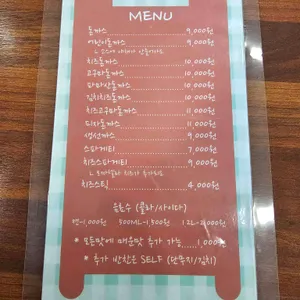 MENU
돈까스 9,000원
어린이돈까스 9,000원
치즈돈까스 10,000원
고구마돈까스 10,000원
파마산돈까스 10,000원
김치치즈돈까스 10,000원
치즈고구마돈까스 11,000원
피자돈까스 11,000원
생선까스 9,000원
스파게티 7,000원
치즈스파게티 9,000원
치즈스틱 4,000원
음료수 (콜라/사이다)
캔-1,000원 500ML-1,500원 1.2L-2,000원
* 모든맛에 매운맛 추가 가능 1,000원
* 추가 반찬은 SELF (단무지/김치)